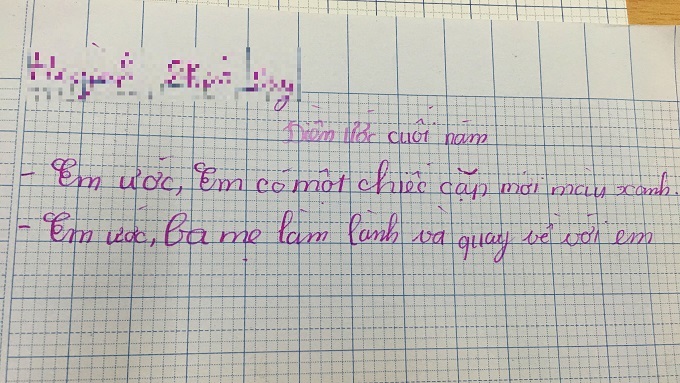 Điều ước cuối năm
- Em ước, Em có một chiếc cặp mới màu xanh.
- Em ước, Ba mẹ làm lành và quay về với em